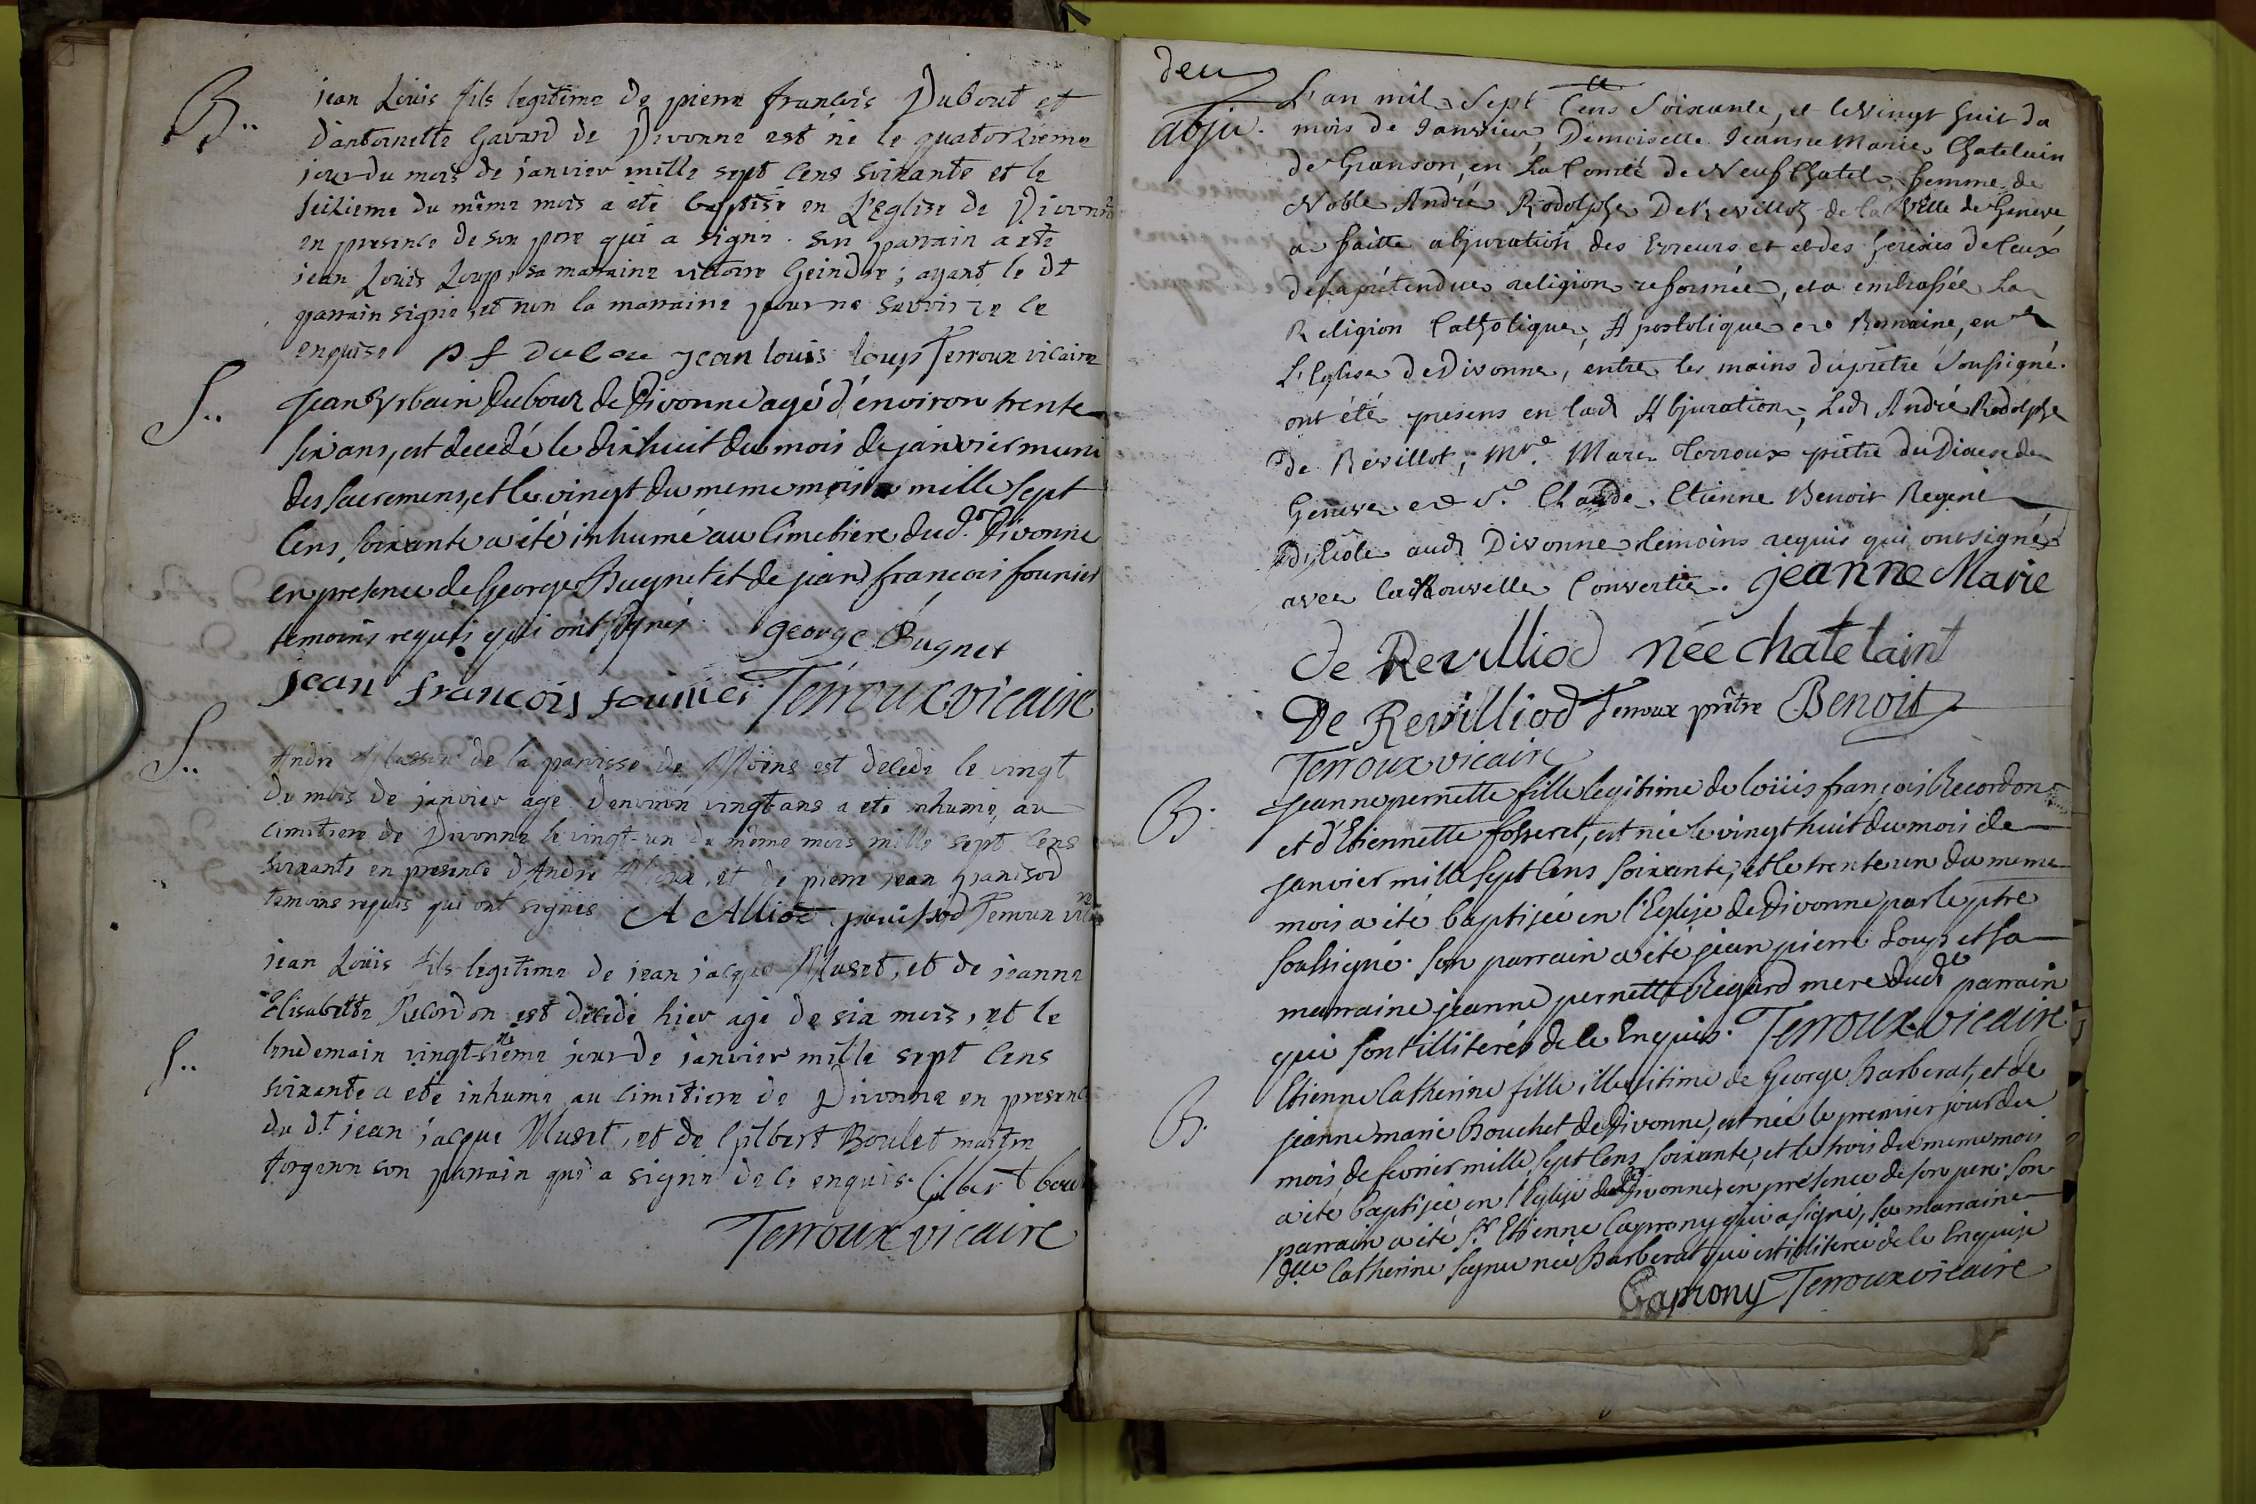 B..
jean Louis fils legitime de pierre francois Dubout et
d'antoinette Gavard de Divonne est né le quatorzieme
jour du mois de janvier mille sept cens soixante et le
seizieme du même mois a été baptisé en L'Eglise de Divonne
en presence de son pere qui a signé. son parrain a été
jean Louis Loup, sa marraine victoire Geindre; ayant le dt
parrain signé, et non la marraine pour ne savoir de ce
enquise p f jean louis loup Terroux vicaire
S..
jean Urbain Dubouz de Divonne agé d'énviron trente
six ans, est decedé le dixhuit du mois de janvier muni
des sacremens, et le vingt du meme mois mille sept
cens soixante a été inhumé au cimetiere dud. Divonne
en presence de George Bugnet et de jean françois fournier
temoins requis qui ont signés. george Bugnet
jean françois fournier Terroux vicaire
S..
André de la paroisse de est decede le vingt
du mois de janvier age d'environ vingt ans a ete inhumé, au
cimetiere de Divonne le vingt-un du même mois mille sept cens
soixante en presence d'André et de pierre jean panisod
temoins requis qui ont signés A Alliod panissod Terroux vic
jean Loüis fils legitime de jean jacque Muset, et de jeanne
Elisabette Recordon est decedé hier agé de six mois, et le
S..
lendemain jour de janvier mille sept cens
soixante a eté inhumé au cimetiere de Divonne en presence
du dt jean jacque Muset, et de Gilbert Boulet maitre
forgeron son parrain qui a signé de ce enquis. Gilbert boul
Terroux vicaire
deu
abju.
L'an mil Sept Cens Soixante, et le vingt huit du
mois de Janvier, Demoiselle Jeanne Marie Chatelain
de Granson, en La Comté de Neufchatel, femme de
Noble André Rodolphe De Revilloz de la Ville de Geneve,
a faitte abjuration des Erreurs et et des heresies de Ceux
de la prétendue religion reformée, et a embrassée La
Religion Catholique, Apostolique et Romaine, en
L'Eglise de Divonne, entre les mains du prêtre soussigné.
ont été presens en lad Abjuration, Led André Rodolphe
de Revillot, Mre. Marc Terroux prêtre du Diocese de
Geneve et Sr. Claude Etienne Benoit Regent
D'Ecôle aud Divonne temoins requis qui ont signés
avec la Nouvelle Convertie. jeanne Marie
de Revilliod née chatelaint
De Revilliod Terroux prêtre Benoit
Terroux vicaire
B.
jeanne pernette fille legitime de loüis françois Recordon
et d'Etiennette fosseret, est née le vingt huit du mois de
janvier mille sept cens soixante, et le trente un du meme
mois a été baptisée en l'Eglise de Divonne par le ptre
soussigné. son parrain a été jean pierre Loup et sa
marraine jeanne pernette Regard mere dudt parrain
qui sont illiterés de ce enquis. Terroux vicaire
B.
Etienne Catherine fille illegitime de George Barberat, et de
jeanne marie Bouchet de Divonne, est née le premier jour du
mois de fevrier mille sept cens soixante, et le trois du meme mois
a été baptisée en l'Eglise dud Divonne, en présence de son pere. son
parrain a été Sr. Etienne Caprony qui a signé, sa marraine
dlle Catherine née Barberat qui est illiterée de ce enquise
Caprony Terroux vicaire